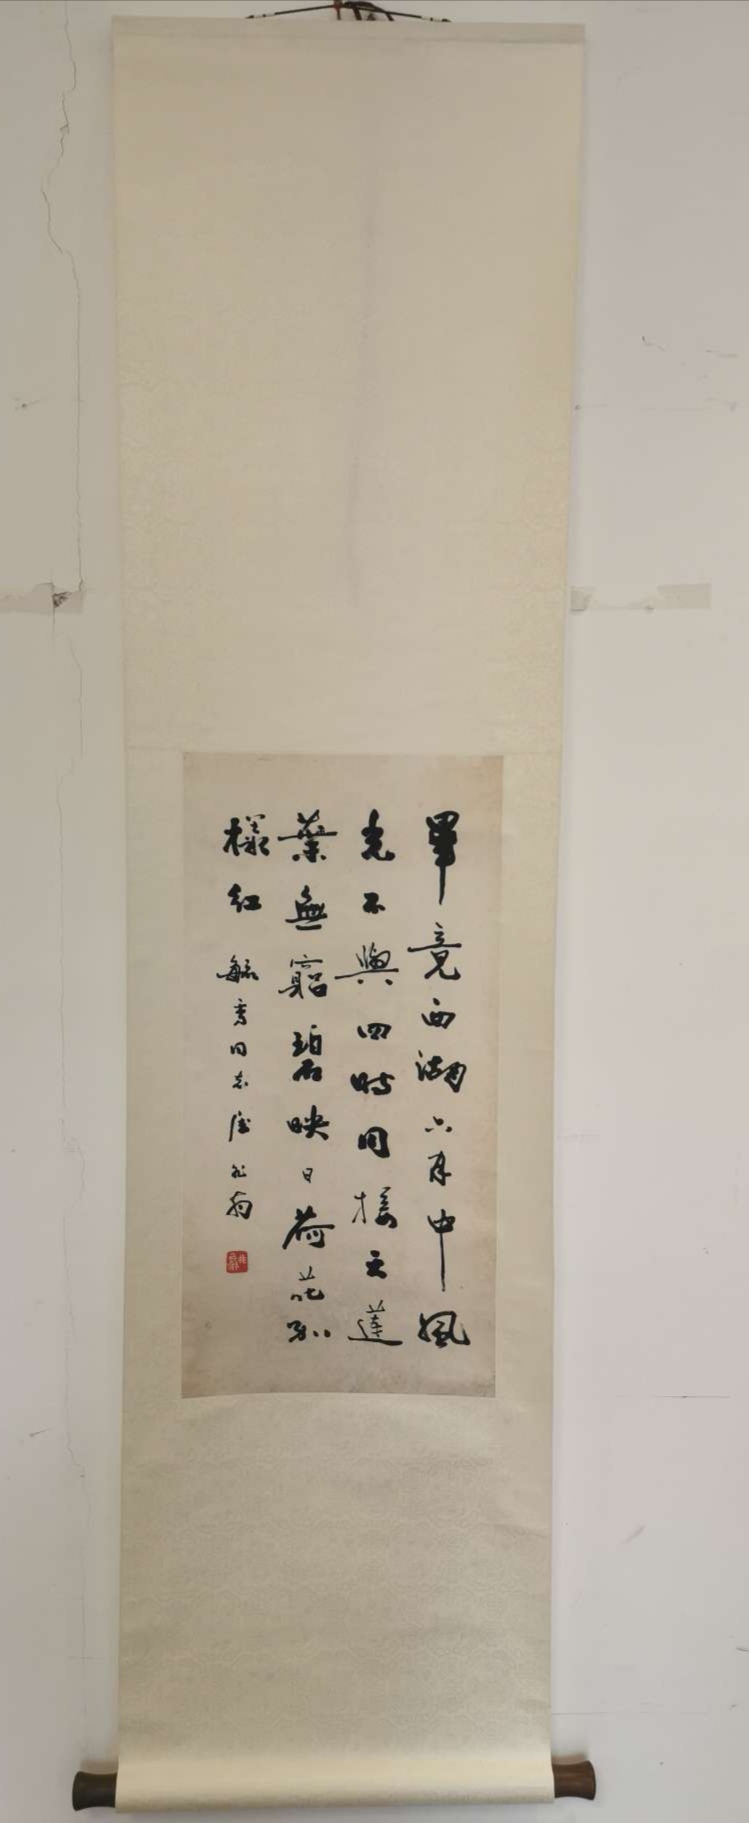 畢竟西湖六月中風
光不與四時同接天蓮
葉無窮碧映日荷花別
樣紅 毓秀同志属